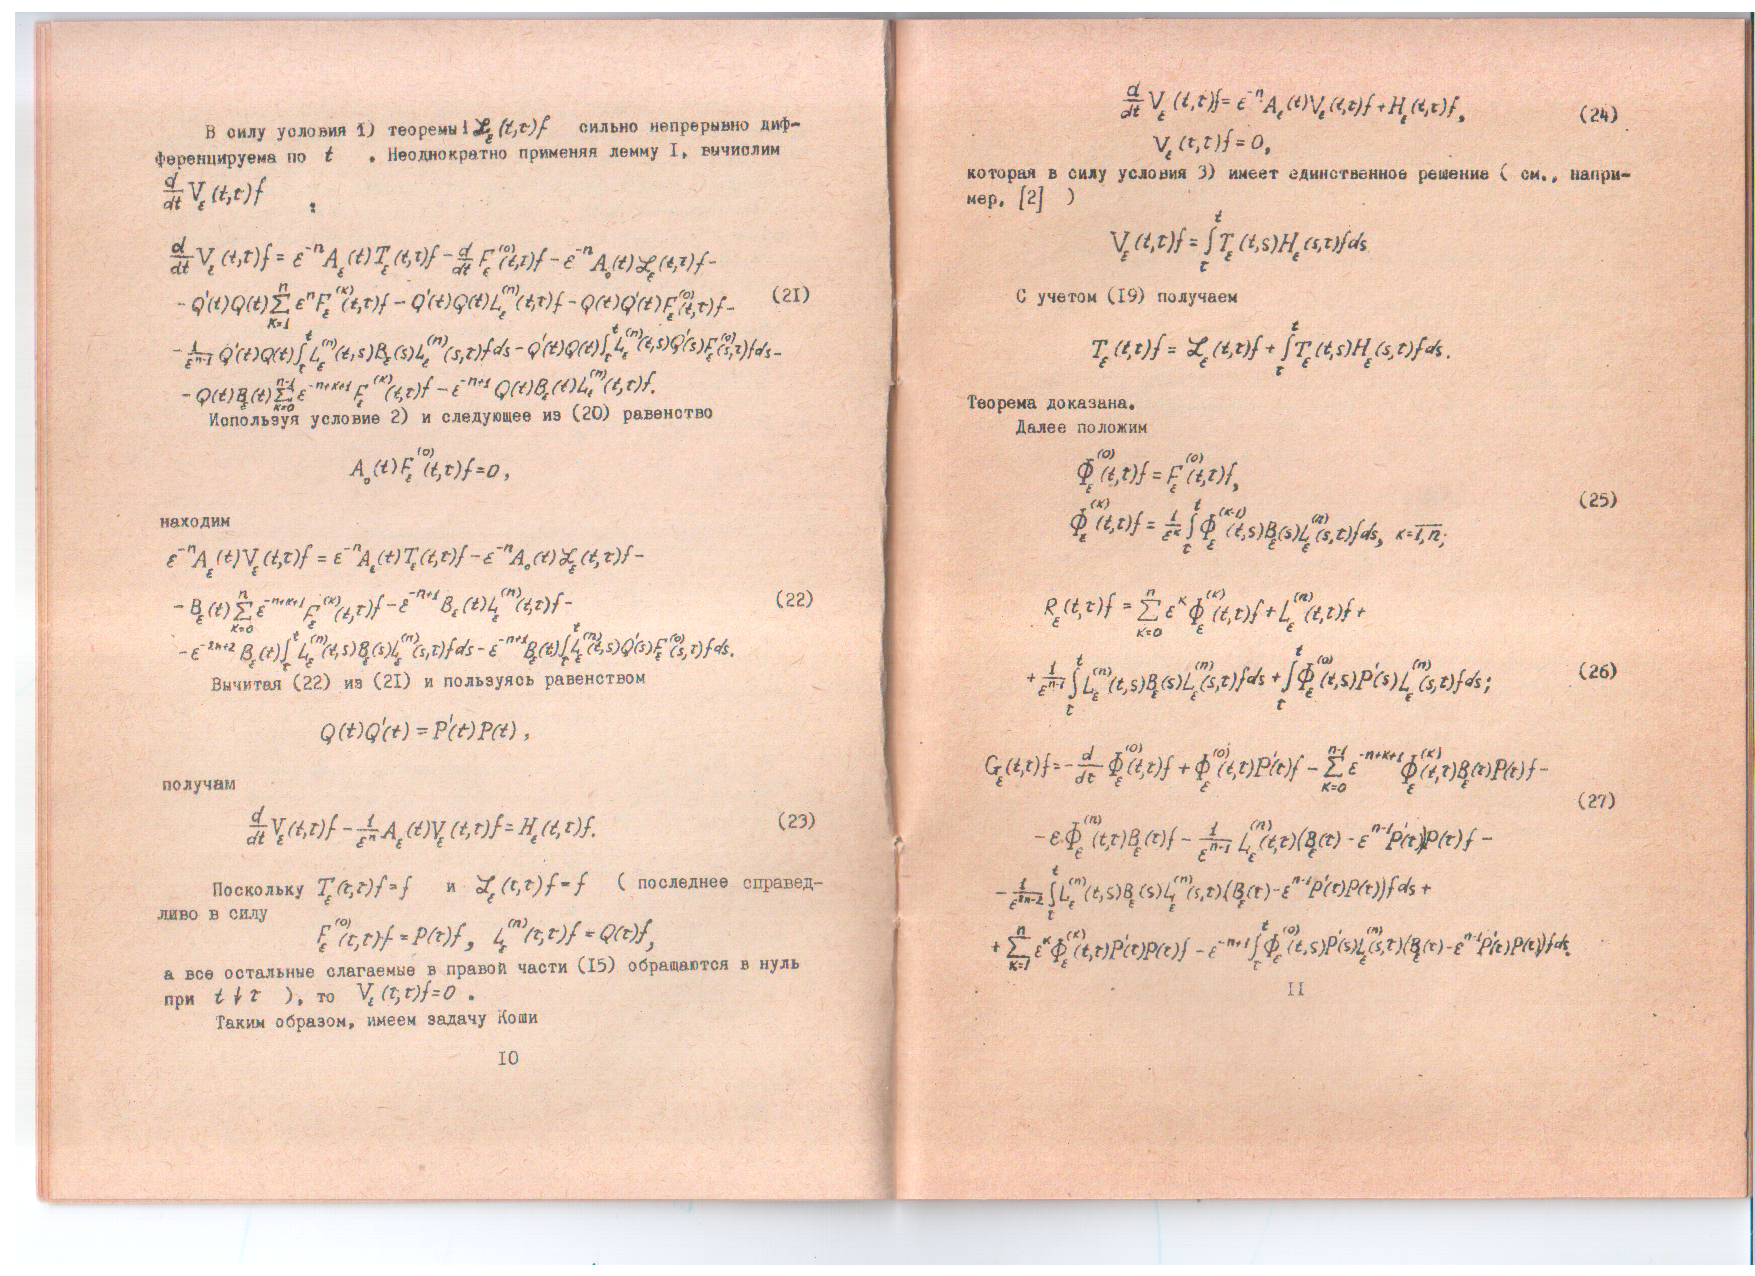 В силу условия 1) теоремы 1 ℒ_ε(t,τ)f сильно непрерывно диф-
ференцируема по t . Неоднократно применяя лемму I, вычислим
d/dt V_ε(t,τ)f :
d/dt V_ε(t,τ)f = ε^{-n}A_ε(t)T_ε(t,τ)f - d/dt F_ε^{(0)}(t,τ)f - ε^{-n}A_0(t)ℒ_ε(t,τ)f -
- Q'(t)Q(t)∑_{κ=1}^{n} ε^n F_ε^{(κ)}(t,τ)f - Q'(t)Q(t)L_ε^{(n)}(t,τ)f - Q(t)Q'(t)F_ε^{(0)}(t,τ)f - (21)
- 1/ε^{n-1} Q'(t)Q(t)∫_τ^t L_ε^{(n)}(t,s)B_ε(s)L_ε^{(n)}(s,τ)fds - Q'(t)Q(t)∫_τ^t L_ε^{(n)}(t,s)Q'(s)F_ε^{(0)}(s,τ)fds -
- Q(t)B_ε(t)∑_{κ=0}^{n-1} ε^{-n+κ+1} F_ε^{(κ)}(t,τ)f - ε^{-n+1} Q(t)B_ε(t)L_ε^{(n)}(t,τ)f.
Используя условие 2) и следующее из (20) равенство
A_0(t)F_ε^{(0)}(t,τ)f = 0,
находим
ε^{-n}A_ε(t)V_ε(t,τ)f = ε^{-n}A_ε(t)T_ε(t,τ)f - ε^{-n}A_0(t)ℒ_ε(t,τ)f -
- B_ε(t)∑_{κ=0}^{n} ε^{-n+κ+1} F_ε^{(κ)}(t,τ)f - ε^{-n+1} B_ε(t)L_ε^{(n)}(t,τ)f - (22)
- ε^{-2n+2} B_ε(t)∫_τ^t L_ε^{(n)}(t,s)B_ε(s)L_ε^{(n)}(s,τ)fds - ε^{-n+1} B_ε(t)∫_τ^t L_ε^{(n)}(t,s)Q'(s)F_ε^{(0)}(s,τ)fds.
Вычитая (22) из (21) и пользуясь равенством
Q(t)Q'(t) = P'(t)P(t),
получам
d/dt V_ε(t,τ)f - 1/ε^n A_ε(t)V_ε(t,τ)f = H_ε(t,τ)f. (23)
Поскольку T_ε(τ,τ)f = f и ℒ_ε(τ,τ)f = f ( последнее справед-
ливо в силу
F_ε^{(0)}(τ,τ)f = P(τ)f, L_ε^{(n)}(τ,τ)f = Q(τ)f,
а все остальные слагаемые в правой части (15) обращаются в нуль
при t↓τ ), то V_ε(τ,τ)f = 0 .
Таким образом, имеем задачу Коши
10
d/dt V_ε(t,τ)f = ε^{-n}A_ε(t)V_ε(t,τ)f + H_ε(t,τ)f, (24)
V_ε(τ,τ)f = 0,
которая в силу условия 3) имеет единственное решение ( см., напри-
мер, [2] )
V_ε(t,τ)f = ∫_τ^t T_ε(t,s)H_ε(s,τ)fds
С учетом (19) получаем
T_ε(t,τ)f = ℒ_ε(t,τ)f + ∫_τ^t T_ε(t,s)H_ε(s,τ)fds.
Теорема доказана.
Далее положим
Φ_ε^{(0)}(t,τ)f = F_ε^{(0)}(t,τ)f,
Φ_ε^{(κ)}(t,τ)f = 1/ε^κ ∫_τ^t Φ_ε^{(κ-1)}(t,s)B_ε(s)L_ε^{(n)}(s,τ)fds, κ = 1,n; (25)
R_ε(t,τ)f = ∑_{κ=0}^{n} ε^κ Φ_ε^{(κ)}(t,τ)f + L_ε^{(n)}(t,τ)f +
+ 1/ε^{n-1} ∫_τ^t L_ε^{(n)}(t,s)B_ε(s)L_ε^{(n)}(s,τ)fds + ∫_τ^t Φ_ε^{(0)}(t,s)P'(s)L_ε^{(n)}(s,τ)fds; (26)
G_ε(t,τ)f = - d/dτ Φ_ε^{(0)}(t,τ)f + Φ_ε^{(0)}(t,τ)P'(τ)f - ∑_{κ=0}^{n-1} ε^{-n+κ+1} Φ_ε^{(κ)}(t,τ)B_ε(τ)P(τ)f -
(27)
- εΦ_ε^{(n)}(t,τ)B_ε(τ)f - 1/ε^{n-1} L_ε^{(n)}(t,τ)(B_ε(τ) - ε^{n-1}P'(τ))P(τ)f -
- 1/ε^{2n-2} ∫_τ^t L_ε^{(n)}(t,s)B_ε(s)L_ε^{(n)}(s,τ)(B_ε(τ) - ε^{n-1}P'(τ)P(τ))fds +
+ ∑_{κ=1}^{n} ε^κ Φ_ε^{(κ)}(t,τ)P'(τ)P(τ)f - ε^{-n+1} ∫_τ^t Φ_ε^{(0)}(t,s)P'(s)L_ε^{(n)}(s,τ)(B_ε(τ) - ε^{n-1}P'(τ)P(τ))fds.
11